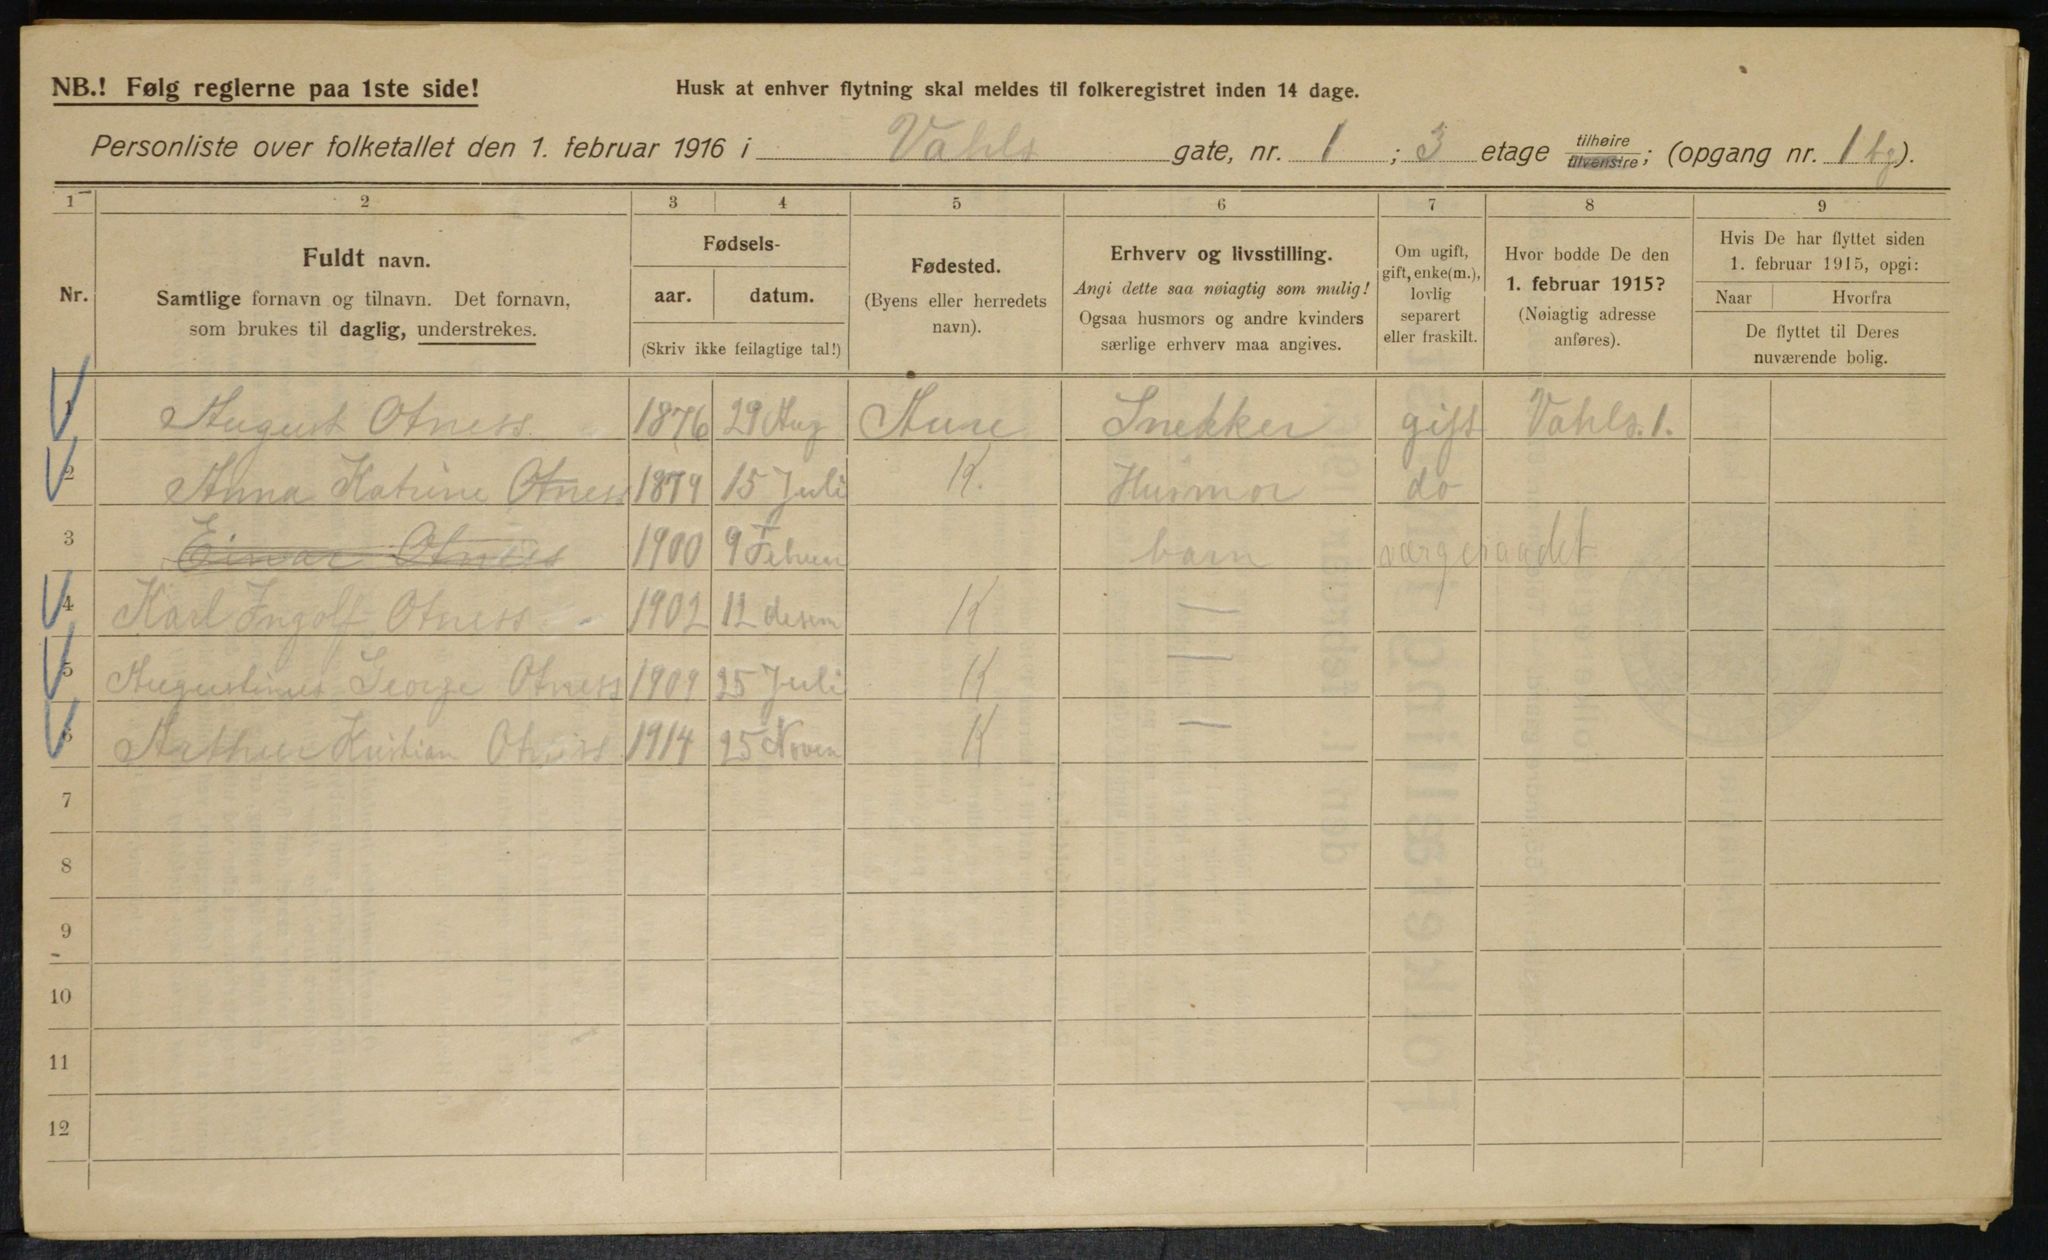 NB.! Følg reglerne paa 1ste side!
Husk at enhver flytning skal meldes til folkeregistret inden 14 dage.
Personliste over folketallet den 1. februar 1916 i Vahls gate, nr. 1 ; 3 etage tilhøire tilvenstre; (opgang nr. 1 ).
1 2 3 4 5 6 7 8 9
Nr.
Fuldt navn.
Samtlige fornavn og tilnavn. Det fornavn,
som brukes til daglig, understrekes.
Fødsels-
aar. datum.
(Skriv ikke feilagtige tal!)
Fødested.
(Byens eller herredets
navn).
Erhverv og livsstilling.
Angi dette saa nøiagtig som mulig!
Ogsaa husmors og andre kvinders
særlige erhverv maa angives.
Om ugift,
gift, enke(m.),
lovlig
separert
eller fraskilt.
Hvor bodde De den
1. februar 1915?
(Nøiagtig adresse
anføres).
Hvis De har flyttet siden
1. februar 1915, opgi:
Naar Hvorfra
De flyttet til Deres
nuværende bolig.
1 August Otness 1876 29 Aug Aure Snekker gift Vahls. 1.
2 Anna Katrine Otness 1879 15 Juli K. Husmor do
3 Einar Otness 1900 9 Februar barn værgeraadet
4 Karl Ingolf Otness 1902 12 desem K —
5 Augustinus George Otness 1909 25 Juli K —
6 Arthur Kristian Otness 1914 25 Novem K —
7
8
9
10
11
12